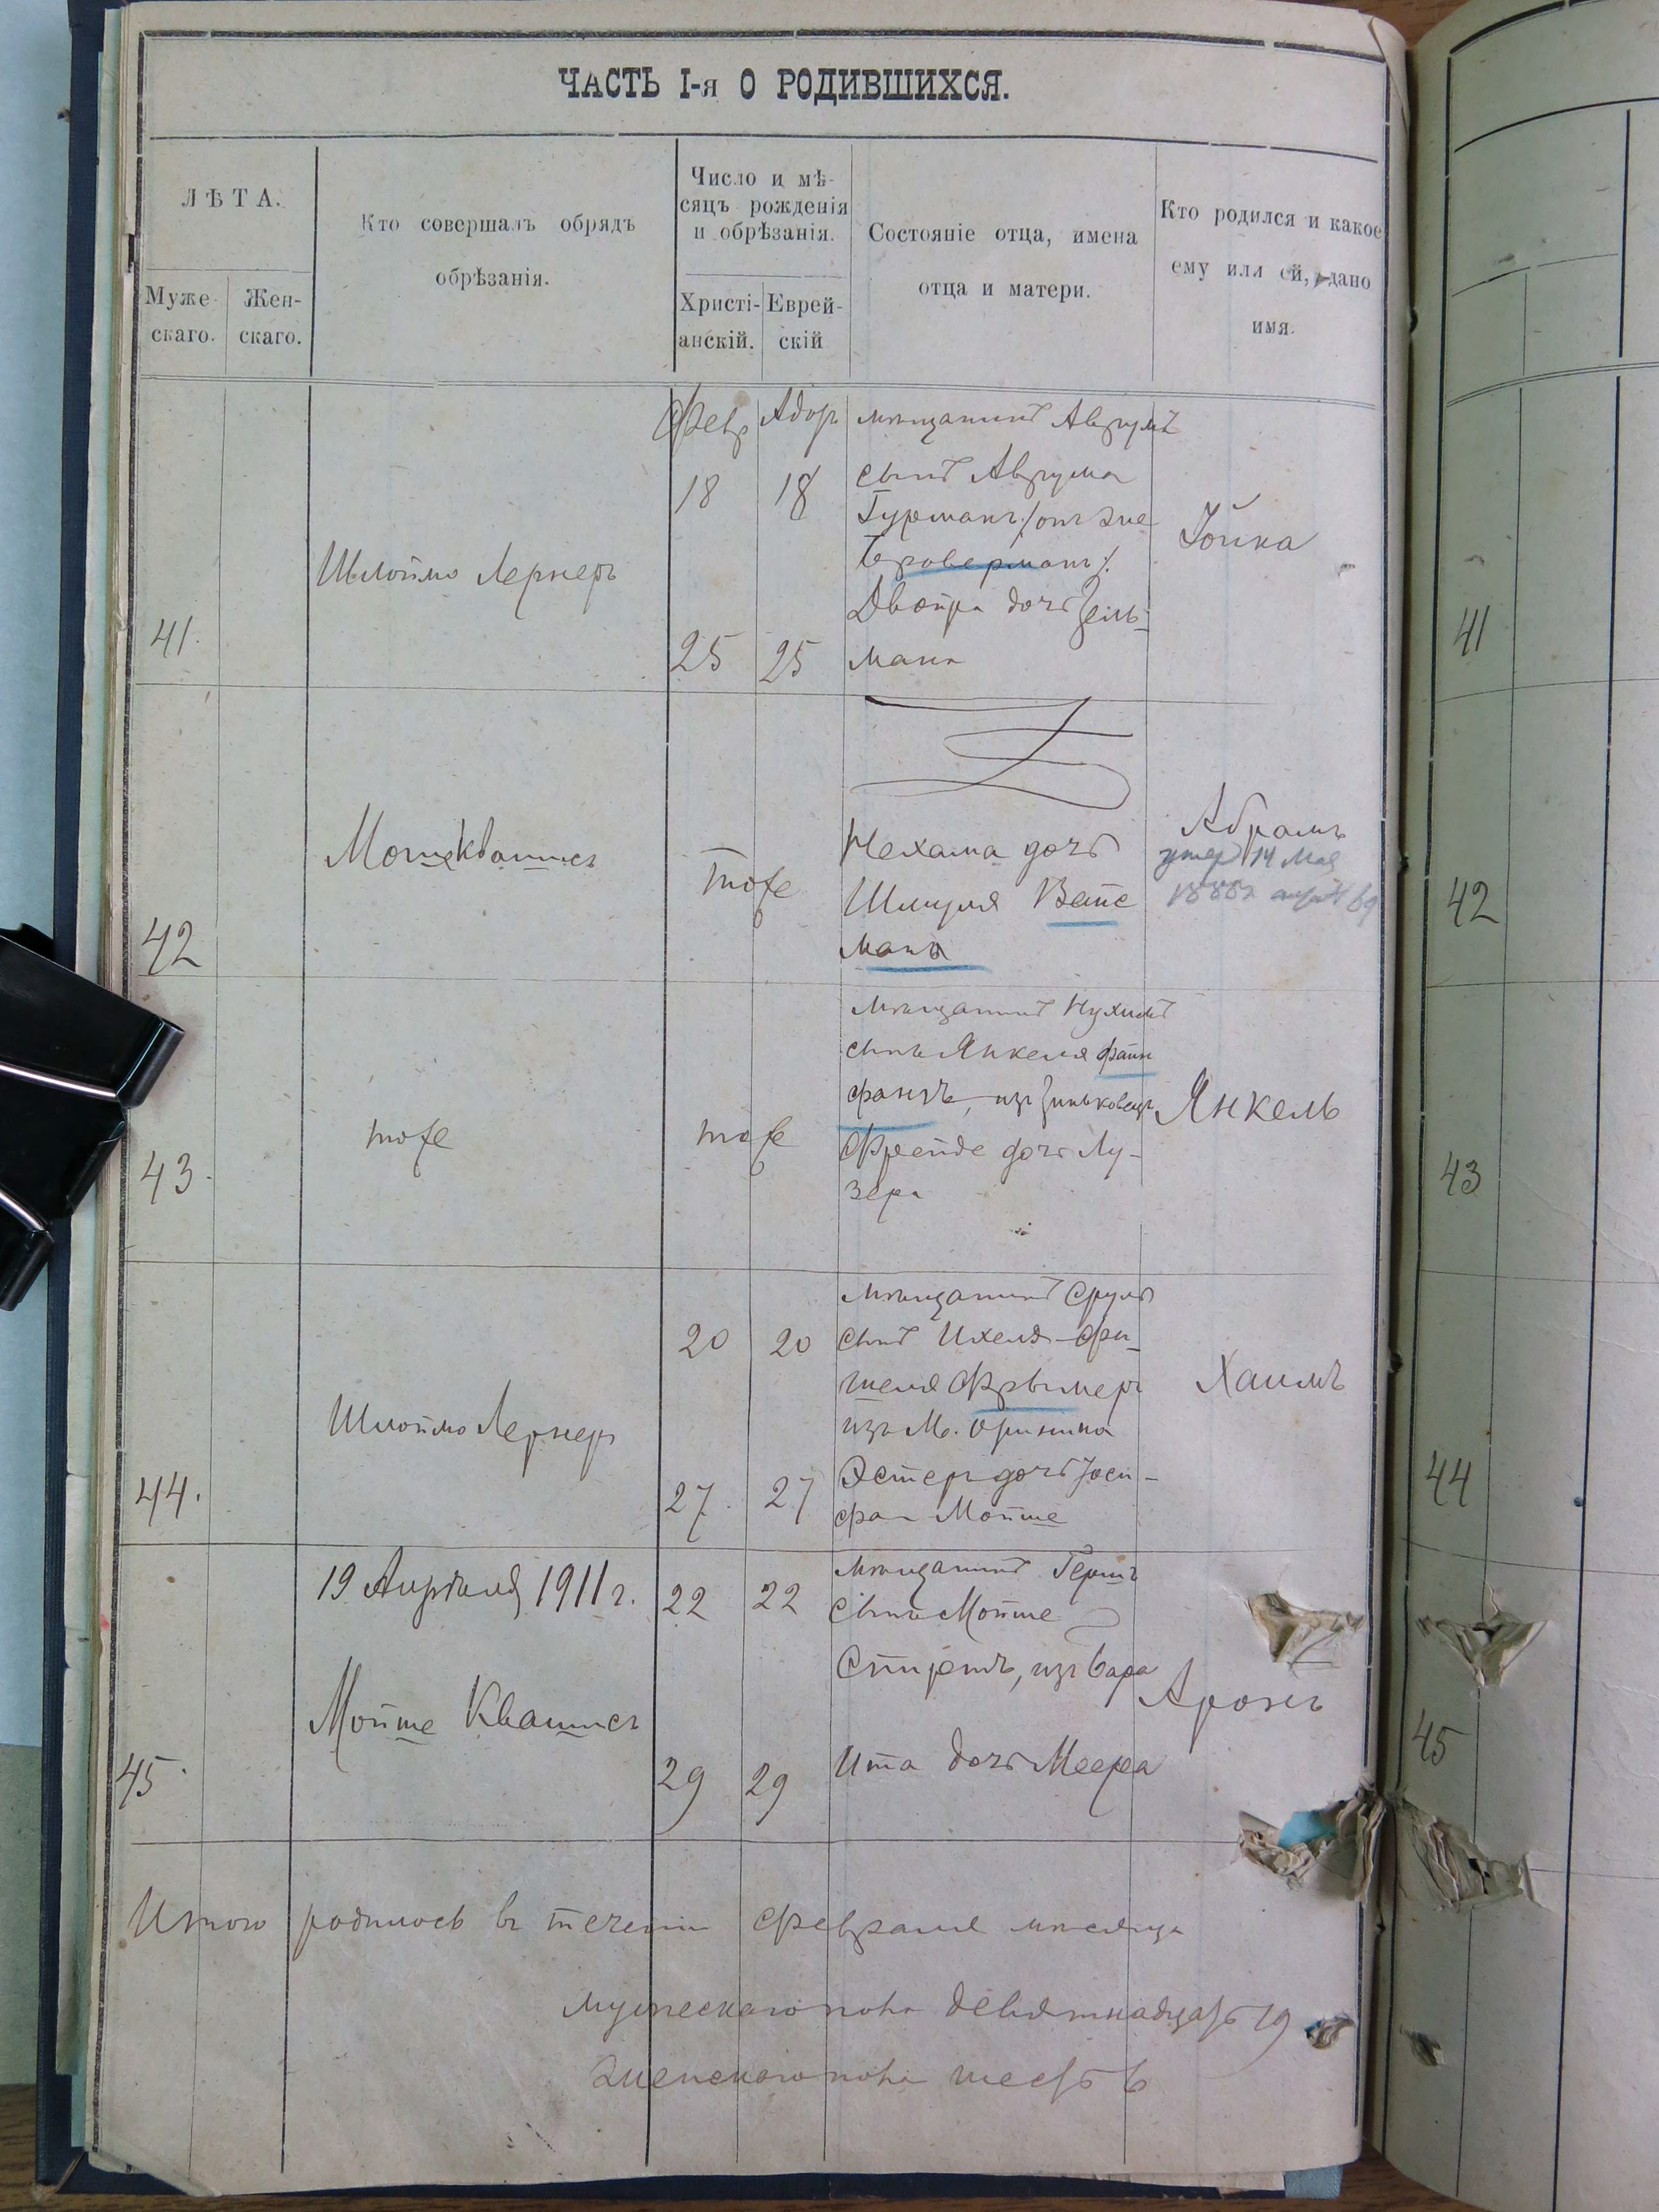 ЧАСТЬ I-я О РОДИВШИХСЯ.
ЛѢТА.
Муже-
скаго.
Жен-
скаго.
Кто совершалъ обрядъ
обрѣзанія.
Число и мѣ-
сяцъ рожденія
и обрѣзанія.
Христі-
анскій.
Еврей-
скій
Состояніе отца, имена
отца и матери.
Кто родился и какое
ему или ей, дано
имя.
41.
Шлоймо Лернеръ
Февр Адоръ
18 18
25 25
мѣщанинъ Аврумъ
сынъ Аврума
Гурманъ /онъ же
Броверманъ/.
Двойра дочь Зель-
мана
Іойна
41
42
Мошe Квашисъ
тоже
Нехама дочь
Шмуля Вайс
мана
Абрамъ
умер 14 Мая
42
43.
тоже
тоже
мѣщанинъ Нухимъ
сынъ Янкеля Файн
фанъ, изъ Зиньковецъ
Фрейде дочь Лу-
зера
Янкель
43
44.
Шлоймо Лернеръ
20 20
27. 27
мѣщанинъ Сруль
сынъ Ихеля-Фи-
шеля Фрымеръ
изъ М. Оринина
Эстеръ дочь Іоси-
фа Мойше
Хаимъ
44
45.
19 Апрѣля 1911 г.
Мойше Квашисъ
22 22
29 29
мѣщанинъ Гершъ
сынъ Мойше
изъ Бара
Ита дочь Меера
Аронъ
45
Итого родилось въ теченіи февраля мѣсяца
мужескаго пола девятнадцать 19
женскаго пола шесть 6